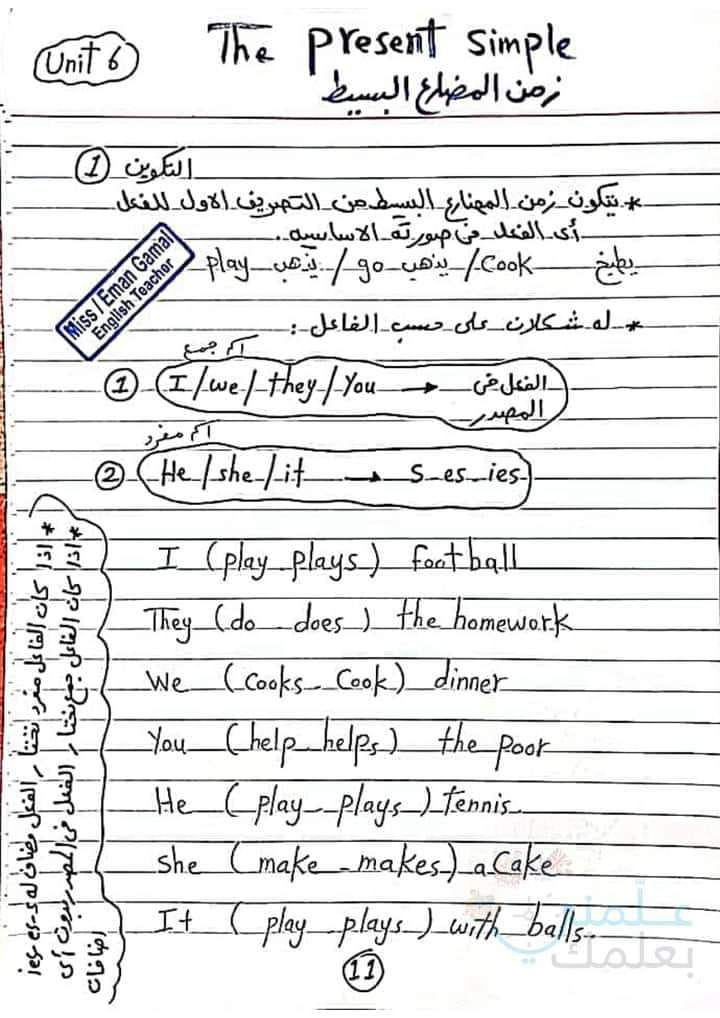 Unit 6
The present simple
زمن المضارع البسيط
① التكوين
* يتكون زمن المضارع البسيط من التصريف الاول للفعل
أى الفعل فى صورته الاساسيه.
play يذهب / go يذهب / cook يطبخ
* له شكلان على حسب الفاعل :
Miss / Eman Gamal
English Teacher
اسم جمع
① I / we / they / You → الفعل فى
المصدر
اسم مفرد
② He / she / it → s - es - ies
I (play - plays) football
They (do - does) the homework
We (cooks - cook) dinner
You (help - helps) the poor
He (play - plays) tennis
She (make - makes) a cake
It (play - plays) with balls.
* اذا كان الفاعل مفرد نختار الفعل مضاف له s - es - ies
* اذا كان الفاعل جمع نختار الفعل فى المصدر بدون أى
اضافات
علّمني
بعلمك
11